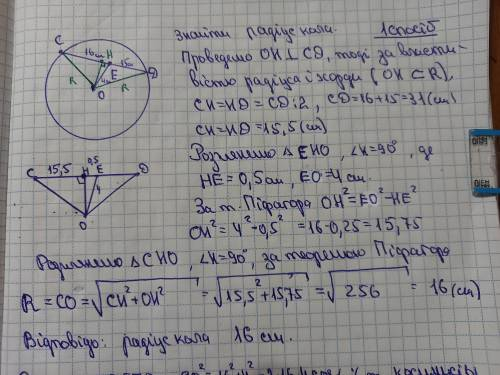 знайти радіус кола.
1спосіб
C 16см H 15см
R E D
4 R
O
Проведемо OH⊥CD, тоді за власти-
вістю радіуса і хорди (OH ⊂ R),
CH=HD=CD:2, CD=16+15=31(см)
CH=HD=15,5(см)
Розглянемо △EHO, ∠H=90°, де
HE=0,5см, EO=4см.
За т. Піфагора OH²=EO²-HE²
OH²=4²-0,5²=16-0,25=15,75
0,5
C 15,5 H E D
4
O
Розглянемо △CHO, ∠H=90°, за теоремою Піфагора
R=CO=√CH²+OH² = √15,5²+15,75 = √256 = 16(см)
Відповідь: радіус кола 16см.